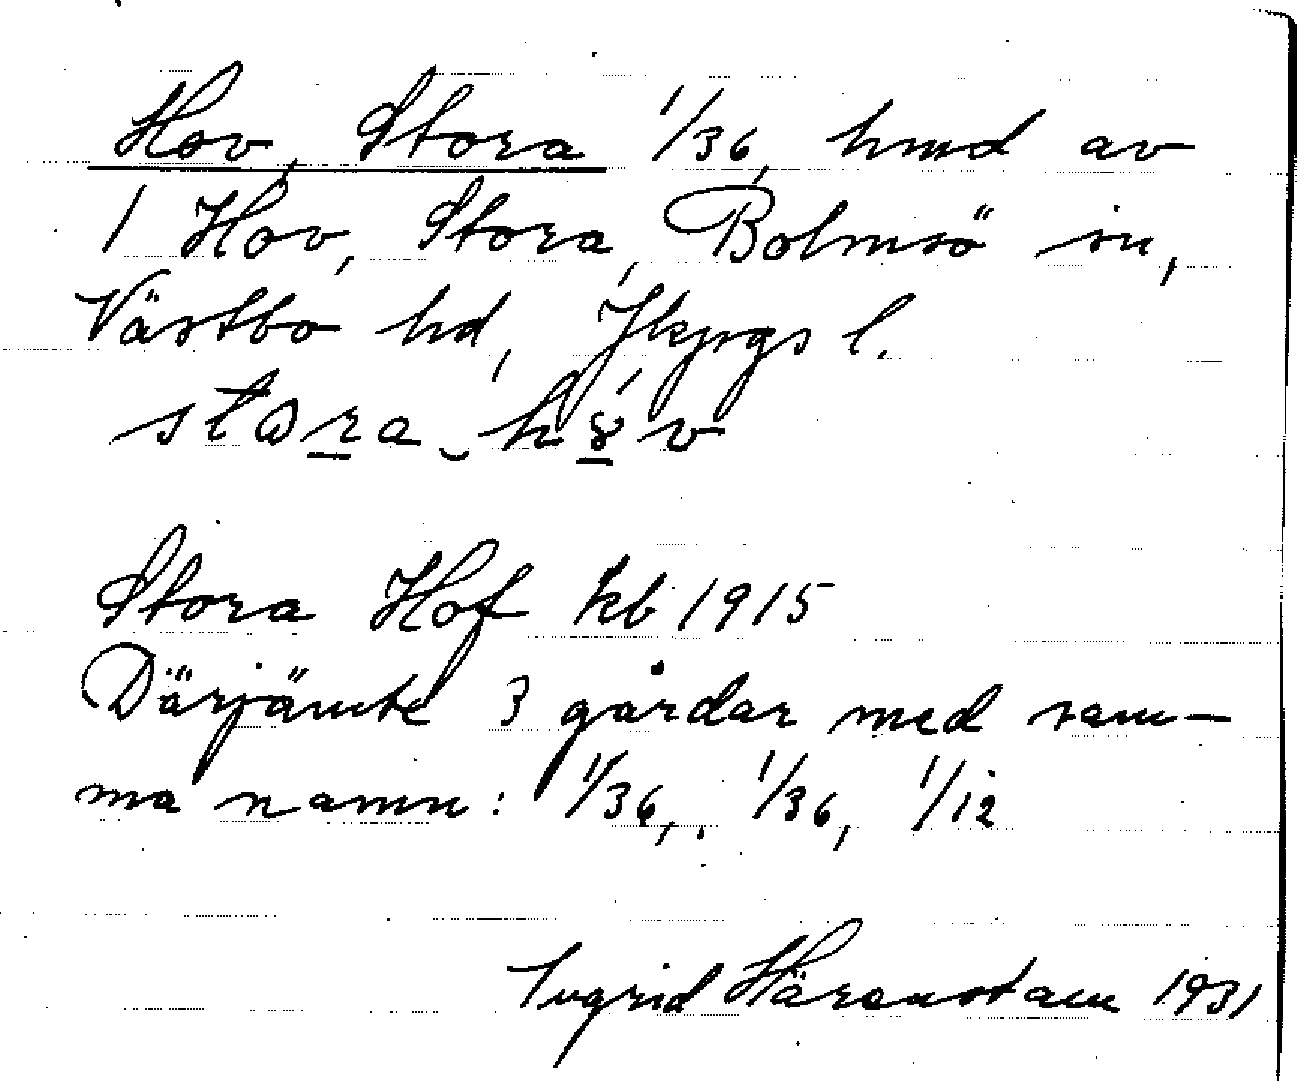 Hov, Stora 1/36 hmd av
1 Hov, Stora, Bolmsö sn,
Västbo hd, Jkpgs l.
stora hov
Stora Hof kb 1915
Därjämte 3 gårdar med sam-
ma namn: 1/36, 1/36, 1/12
Ingrid Härenstam 1931